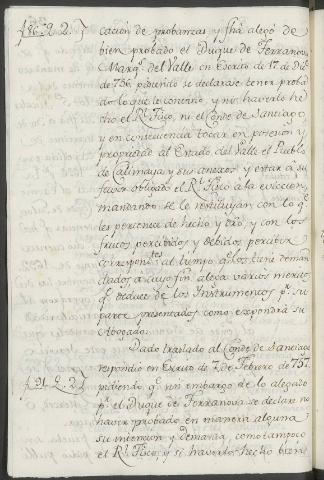 f 86. 2. 2.
cacion de probanzas, y fha alegó de
bien probado el Duque de Terranova
Marq.s del Valle en Escrito de 17 de Dic.e
de 756 pidiendo se declarase tener proba
do lo que le convino, y no haverlo he
cho el R.l Fisco, ni el Conde de Santiago,
y en consecuencia tocar en posesion y
propriedad al Estado del Valle el Pueblo
de Calimaya, y sus anexos y estar à su
favor obligado el R.l Fisco à la eviccion,
mandando se le restituyan con lo q.e
les pertenece de hecho y dro, y con los
frutos percibidos, y debidos percibir
correspond.tes al tiempo q.e los tiene deman
dados à cuyo fin alega varios meritos
q.e deduce de los Instrumentos p.r su
parte presentados como expondrá su
Abogado.
Dado traslado al Conde de Santiago
respondio en Escrito de 2 de Febrero de 757.
f 91. 2. 2.
pidiendo q.e sin embargo de lo alegado
p.r el Duque de Terranova se declare no
haver probado en manera alguna
su intencion y demanda, como tampoco
el R.l Fisco, y si haverlo hecho bien